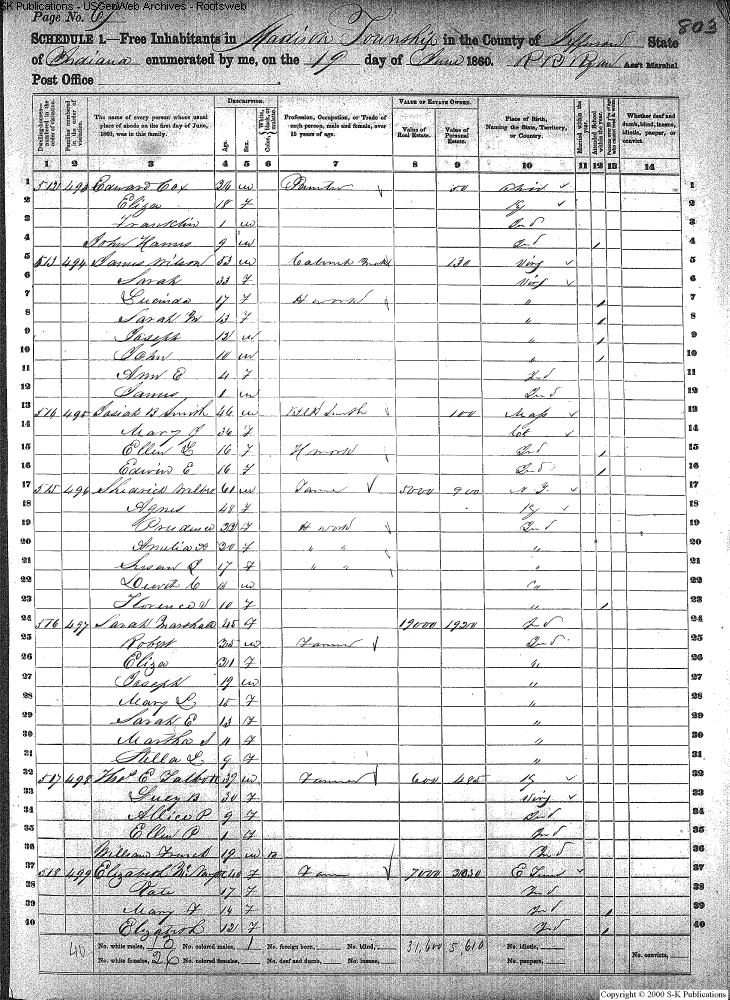 SK Publications - USGenWeb Archives - Rootsweb
Page No. 67
803
SCHEDULE 1.—Free Inhabitants in Madison Township in the County of Jefferson State
of Indiana enumerated by me, on the 19 day of June 1860. R B Ryan Ass't Marshal
Post Office
DESCRIPTION. VALUE OF ESTATE OWNED.
Dwelling-houses—numbered in the order of visitation. Families numbered in the order of visitation. The name of every person whose usual place of abode on the first day of June, 1860, was in this family. Age. Sex. Color, White, black, or mulatto. Profession, Occupation, or Trade of each person, male and female, over 15 years of age. Value of Real Estate. Value of Personal Estate. Place of Birth, Naming the State, Territory, or Country. Married within the year. Attended School within the year. Whether deaf and dumb, blind, insane, idiotic, pauper, or convict.
1 2 3 4 5 6 7 8 9 10 11 12 13 14
1 512 493 Edward Cox 36 m Painter 50 Ohio 1
2 Eliza 18 F Ky 2
3 Franklin 1 m Ind 3
4 John Harris 9 m Ind / 4
5 513 494 James Wilson 53 m Cabinet 130 Virg 5
6 Sarah 33 F Virg 6
7 Lucinda 17 F H work " / 7
8 Sarah M 13 F " / 8
9 Joseph 12 m " / 9
10 John 10 m " / 10
11 Ann E 4 F Ind 11
12 James 1 m Ind 12
13 514 495 Josiah B Smith 46 m Blk Smith 100 Mass 13
14 Mary J 36 F Ct 14
15 Ellen L 16 F H work Ind / 15
16 Edwin E 16 F Ind / 16
17 515 496 61 m Farmer 5000 900 N.Y. 17
18 Agnes 48 F Ky 18
19 Prudence 22 F H work Ind 19
20 Amelia 20 F " " " 20
21 Susan 17 F " " " 21
22 Dewitt C m " 22
23 Florence V 10 F " / 23
24 516 497 Sarah Marshall 45 F 19000 1920 Ind 24
25 Robert 35 m Farmer Ind 25
26 Eliza 21 F " 26
27 Joseph 19 m " 27
28 Mary L 15 F " 28
29 Sarah E 13 F " 29
30 Martha S 11 F " 30
31 Stella L 9 F " 31
32 517 498 Thos E Talbott 39 m Farmer 600 485 Ky 32
33 Lucy B 30 F Virg 33
34 Allice P 9 F Ind 34
35 Ellen P 1 F Ind 35
36 William 19 m B Ind 36
37 518 499 Elizabeth 40 F Farm 7000 E Tenn 37
38 Kate 17 F Ind 38
39 Mary F 14 F Ind / 39
40 Elizabeth 12 F Ind / 40
40 No. white males, No. colored males, 1 No. foreign born, No. blind, 31,600 5,610 No. idiotic, No. convicts,
No. white females, 26 No. colored females, No. deaf and dumb, No. insane, No. paupers,
Copyright © 2000 S-K Publications